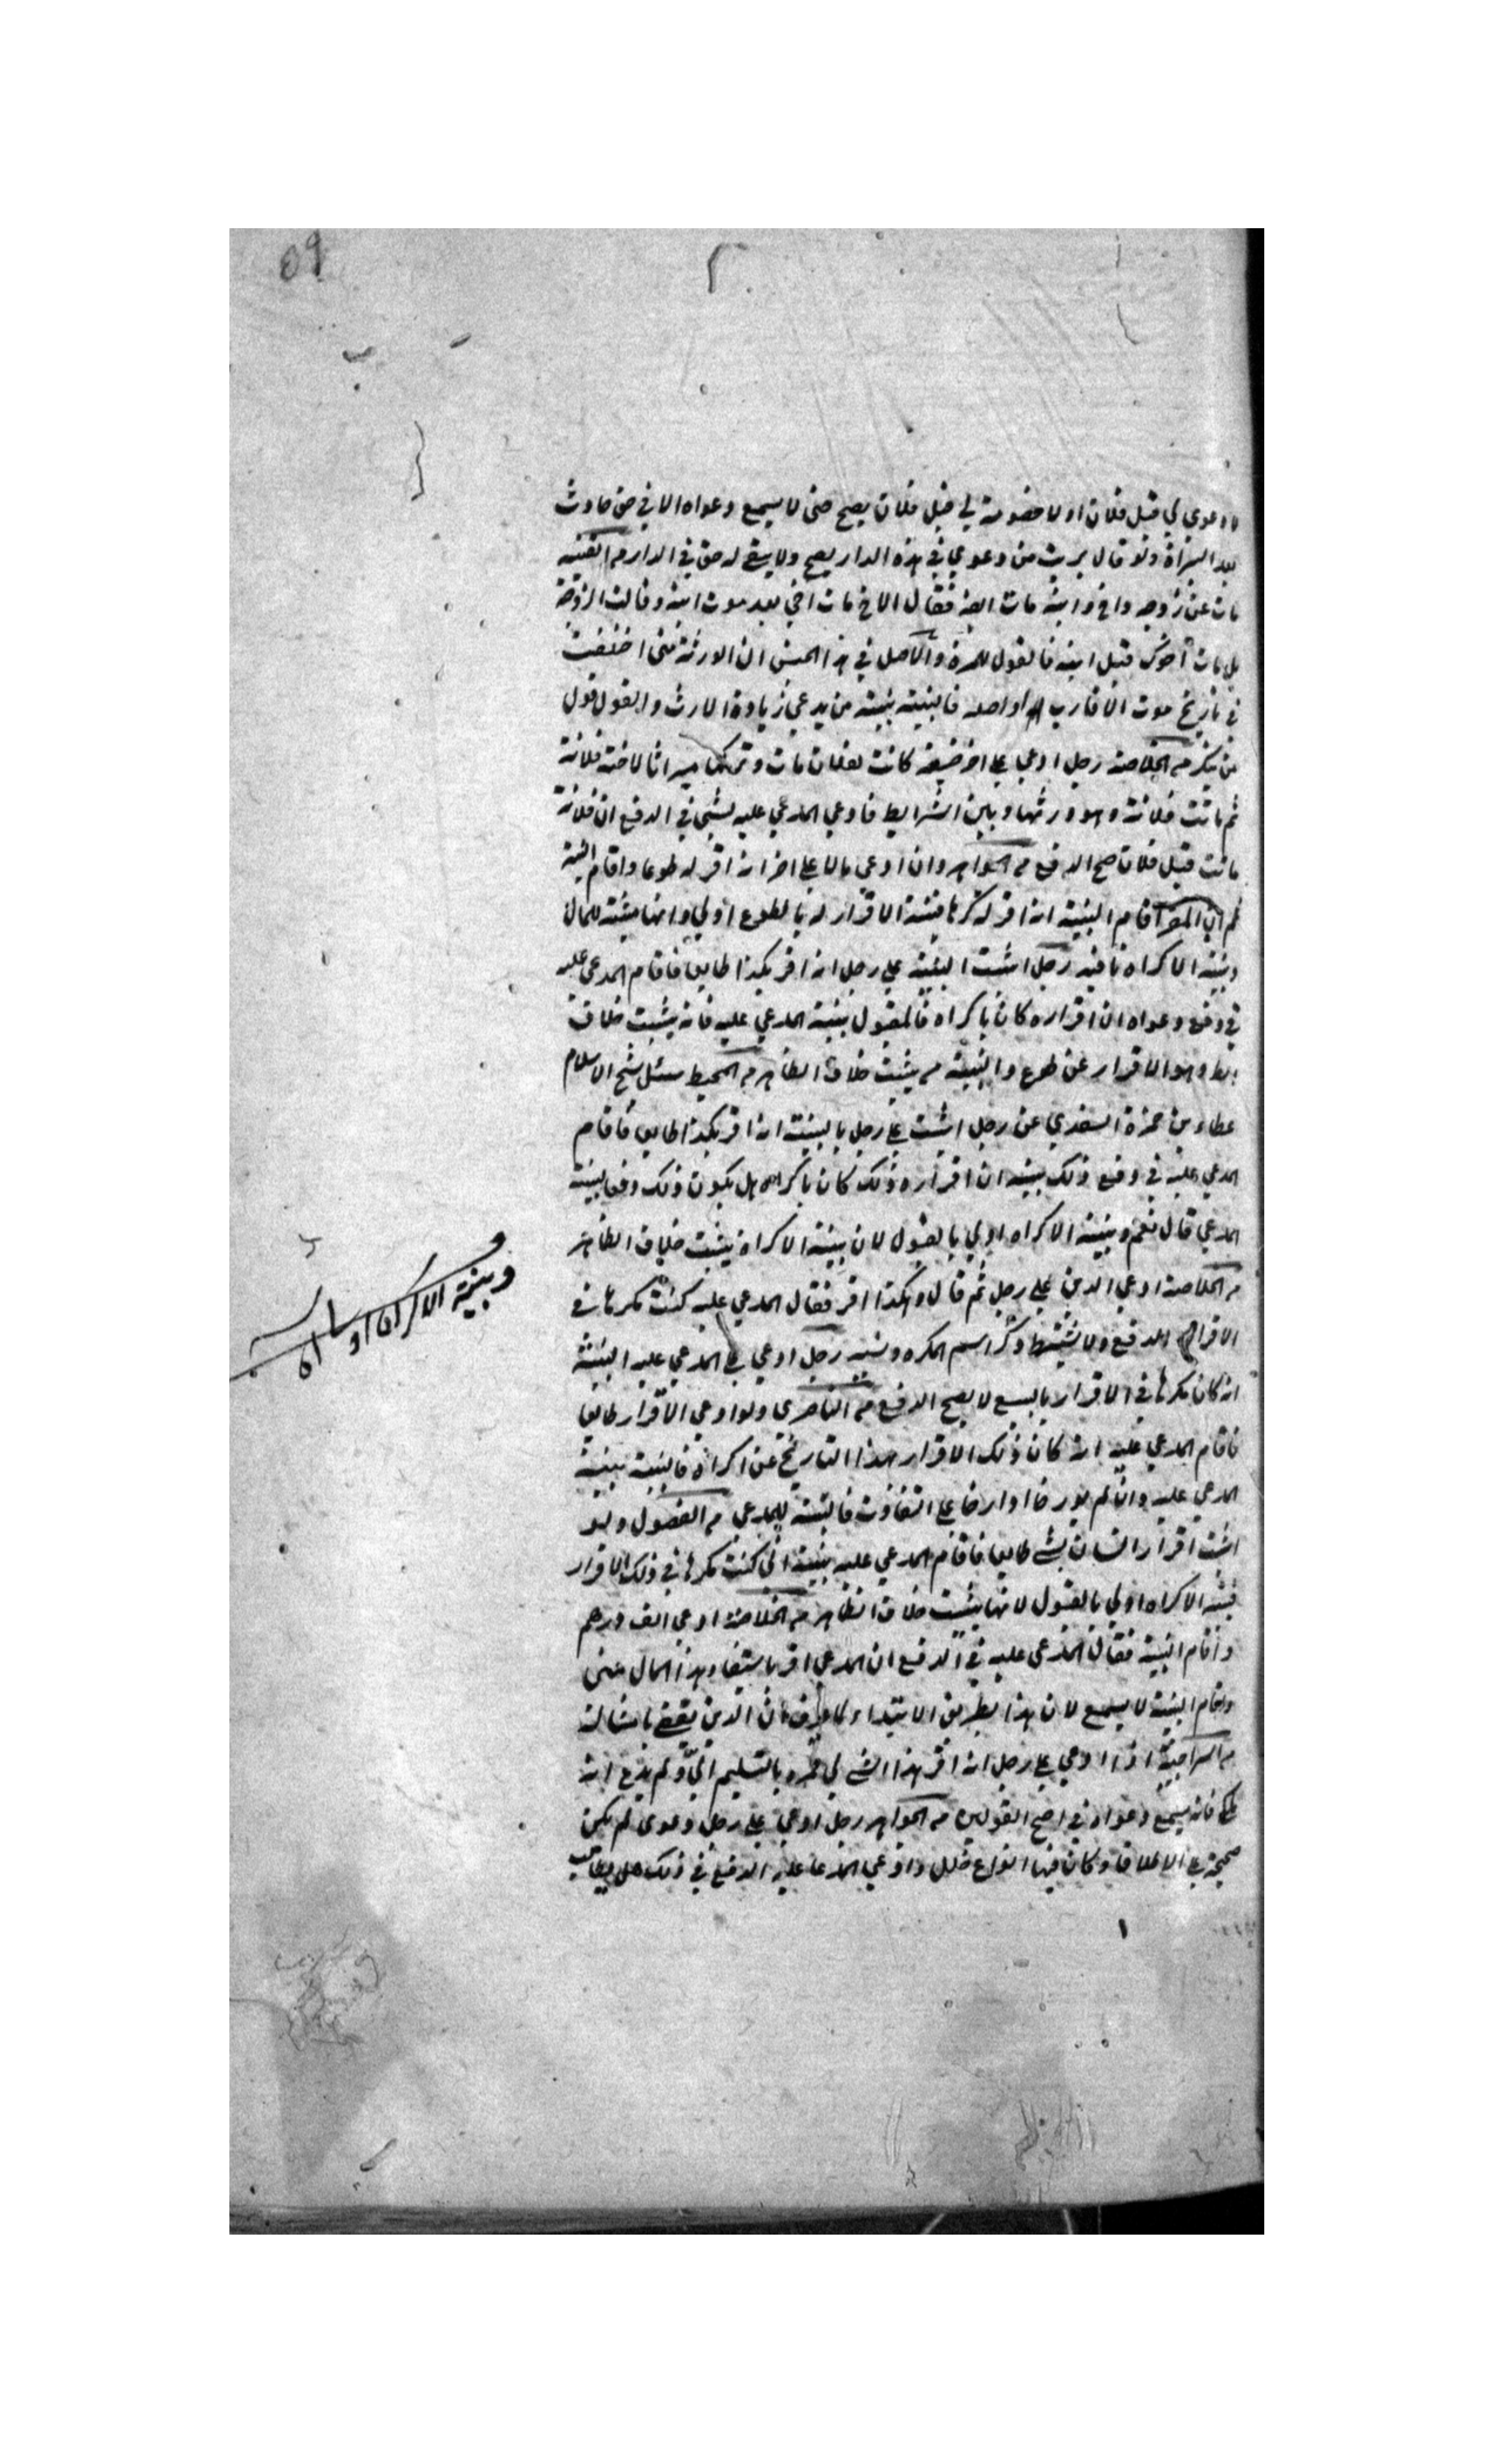 ٥٩
لا دعوى لي قبل فلان او لا خصومة لي قبل فلان يصح حتى لا يسمع دعواه الا في حق حادث
بعد البراة ولو قال بريت من دعوي في هذه الدار يصح ولا يبقى له حق في الدار من القنيه
مات عن زوجه واخ وابنه مات ابنه فقال الاخ مات اخي بعد موت ابنه وقالت الزوجة
بل مات اخوك قبل ابنه فالقول للمرة والاصل في هذا الجنس ان الورثة متى اختلفت
في تاريخ موت الاقارب فالبينة بينة من يدعي زيادة الارث والقول قول
من ينكر من الخلاصة رجل ادعى على اخر ضيعة كانت لفلان مات وتركها ميراثا لاخته فلانة
ثم ماتت فلانة وهو ورثها وبين الشرايط فادعي المدعي عليه بشي في الدفع ان فلانة
ماتت قبل فلان صح الدفع من الجواهر وان ادعى مالا على اخر انه اقر له طوعا واقام البينة
ثم ان المقر اقام البينة انه اقر له كرها فبينة الاقرار له بالطوع اولي وانها مثبتة للمال
وبينة الاكراه نافيه رجل اثبت البينة علي رجل انه اقر بكذا طايعا فاقام المدعى عليه
في دفع دعواه ان اقراره كان باكراه فالمقبول بينة المدعي عليه فانه يثبت خلاف
وهو الاقرار عن طوع والبينة من يثبت خلاف الظاهر من المحيط سئل شيخ الاسلام
عطاء بن حمزة السغدي عن رجل اثبت على رجل بالبينة انه اقر بكذا طايعا فاقام
المدعي عليه في دفع ذلك بينة ان اقراره ذلك كان باكراه هل يكون ذلك دفعا لبينة
المدعي قال نعم وبينة الاكراه اولي بالقبول لان بينة الاكراه يثبت خلاف الظاهر
من الخلاصة ادعي الدين على رجل ثم قال وهكذا اقر فقال المدعي عليه كنت مكرها في
الاقرار الدفع ولا يشترط ذكر اسم المكره ونسبه رجل ادعي على المدعي عليه البينة
انه كان مكرها في الاقرار بالبيع لا يصح الدفع من الناصري ولو ادعي الاقرار طايعا
فاقام المدعي عليه انه كان ذلك الاقرار بهذا التاريخ عن اكراه فالبينة بينة
المدعي عليه وان لم يورخا او ارخا على التفاوت فالبينة للمدعي من الفصول ولو
اثبت اقرار انسان بشي طايعا فاقام المدعي عليه بينة اني كنت مكرها في ذلك الاقرار
فبينة الاكراه اولي بالقبول لانها يثبت خلاف الظاهر من الخلاصة ادعي الف درهم
واقام البينة فقال المدعى عليه في الدفع ان المدعي اقر باستيفاء هذا المال مني
واقام البينة لا يسمع لان هذا بطريق الابتداء لما عرف ان الدين يقضى بامثاله
من السراجية اذا ادعي على رجل انه اقر بهذا الشي لي فمره بالتسليم الي ولم يدع انه
ملكي فانه يسمع دعواه في اصح القولين من الجواهر رجل ادعي على رجل دعوى لم يكن
صحيحة على الاطلاق وكان فيها انواع خلل وادعي المدعا عليه الدفع في ذلك هل
وبينة الاكراه اولى